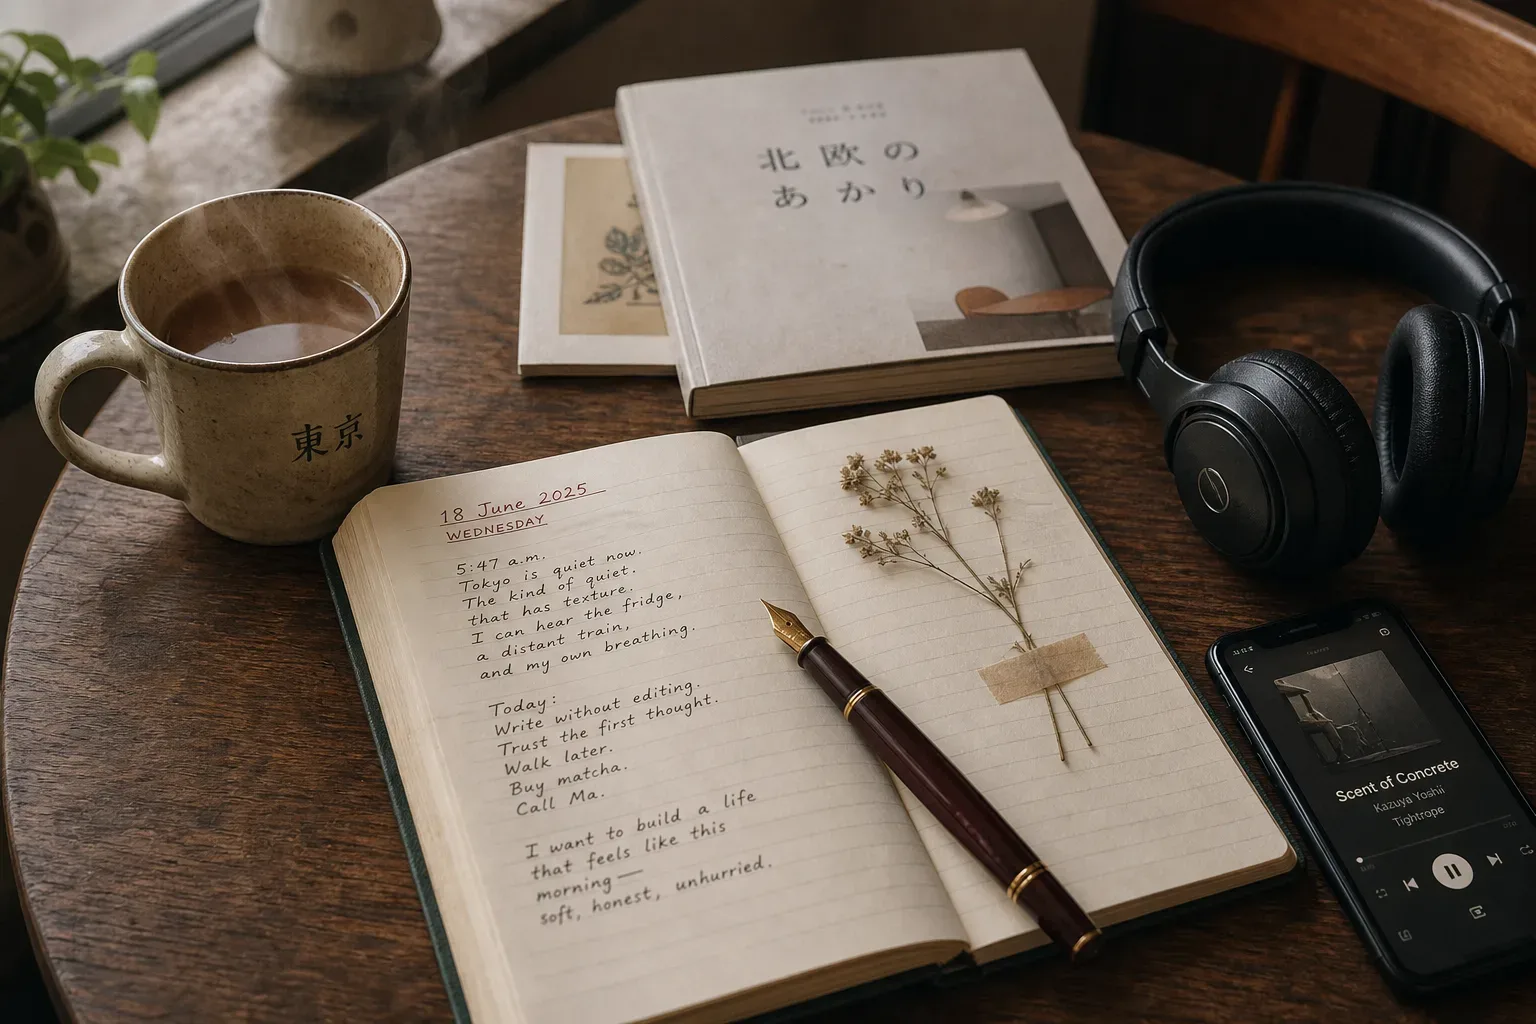 北欧の
あかり
東京
18 June 2025
WEDNESDAY
5:47 a.m.
Tokyo is quiet now.
The kind of quiet.
that has texture.
I can hear the fridge,
a distant train,
and my own breathing.
Today:
Write without editing.
Trust the first thought.
Walk later.
Buy matcha.
Call Ma.
I want to build a life
that feels like this
morning—
soft, honest, unhurried.
Scent of Concrete
Kazuya Yoshii
Tightrope